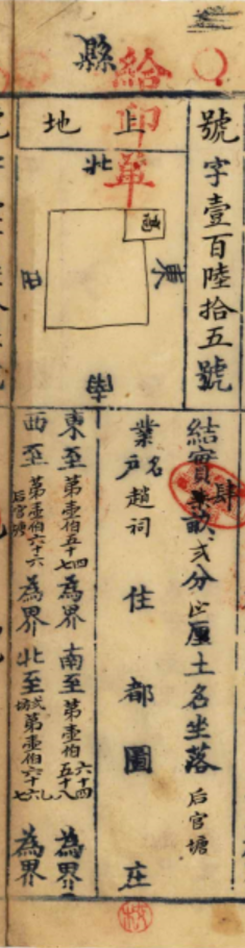 號字壹百陸拾五號
縣
給印單
上地
北
東
西
南
結實畝弍分厘土名坐落后官塘
業戶名趙祠住都圖庄
東至第壹伯五十四七為界南至第壹伯六十四五十八為界
西至第壹伯六十六后官塘為界北至第壹伯六十為界